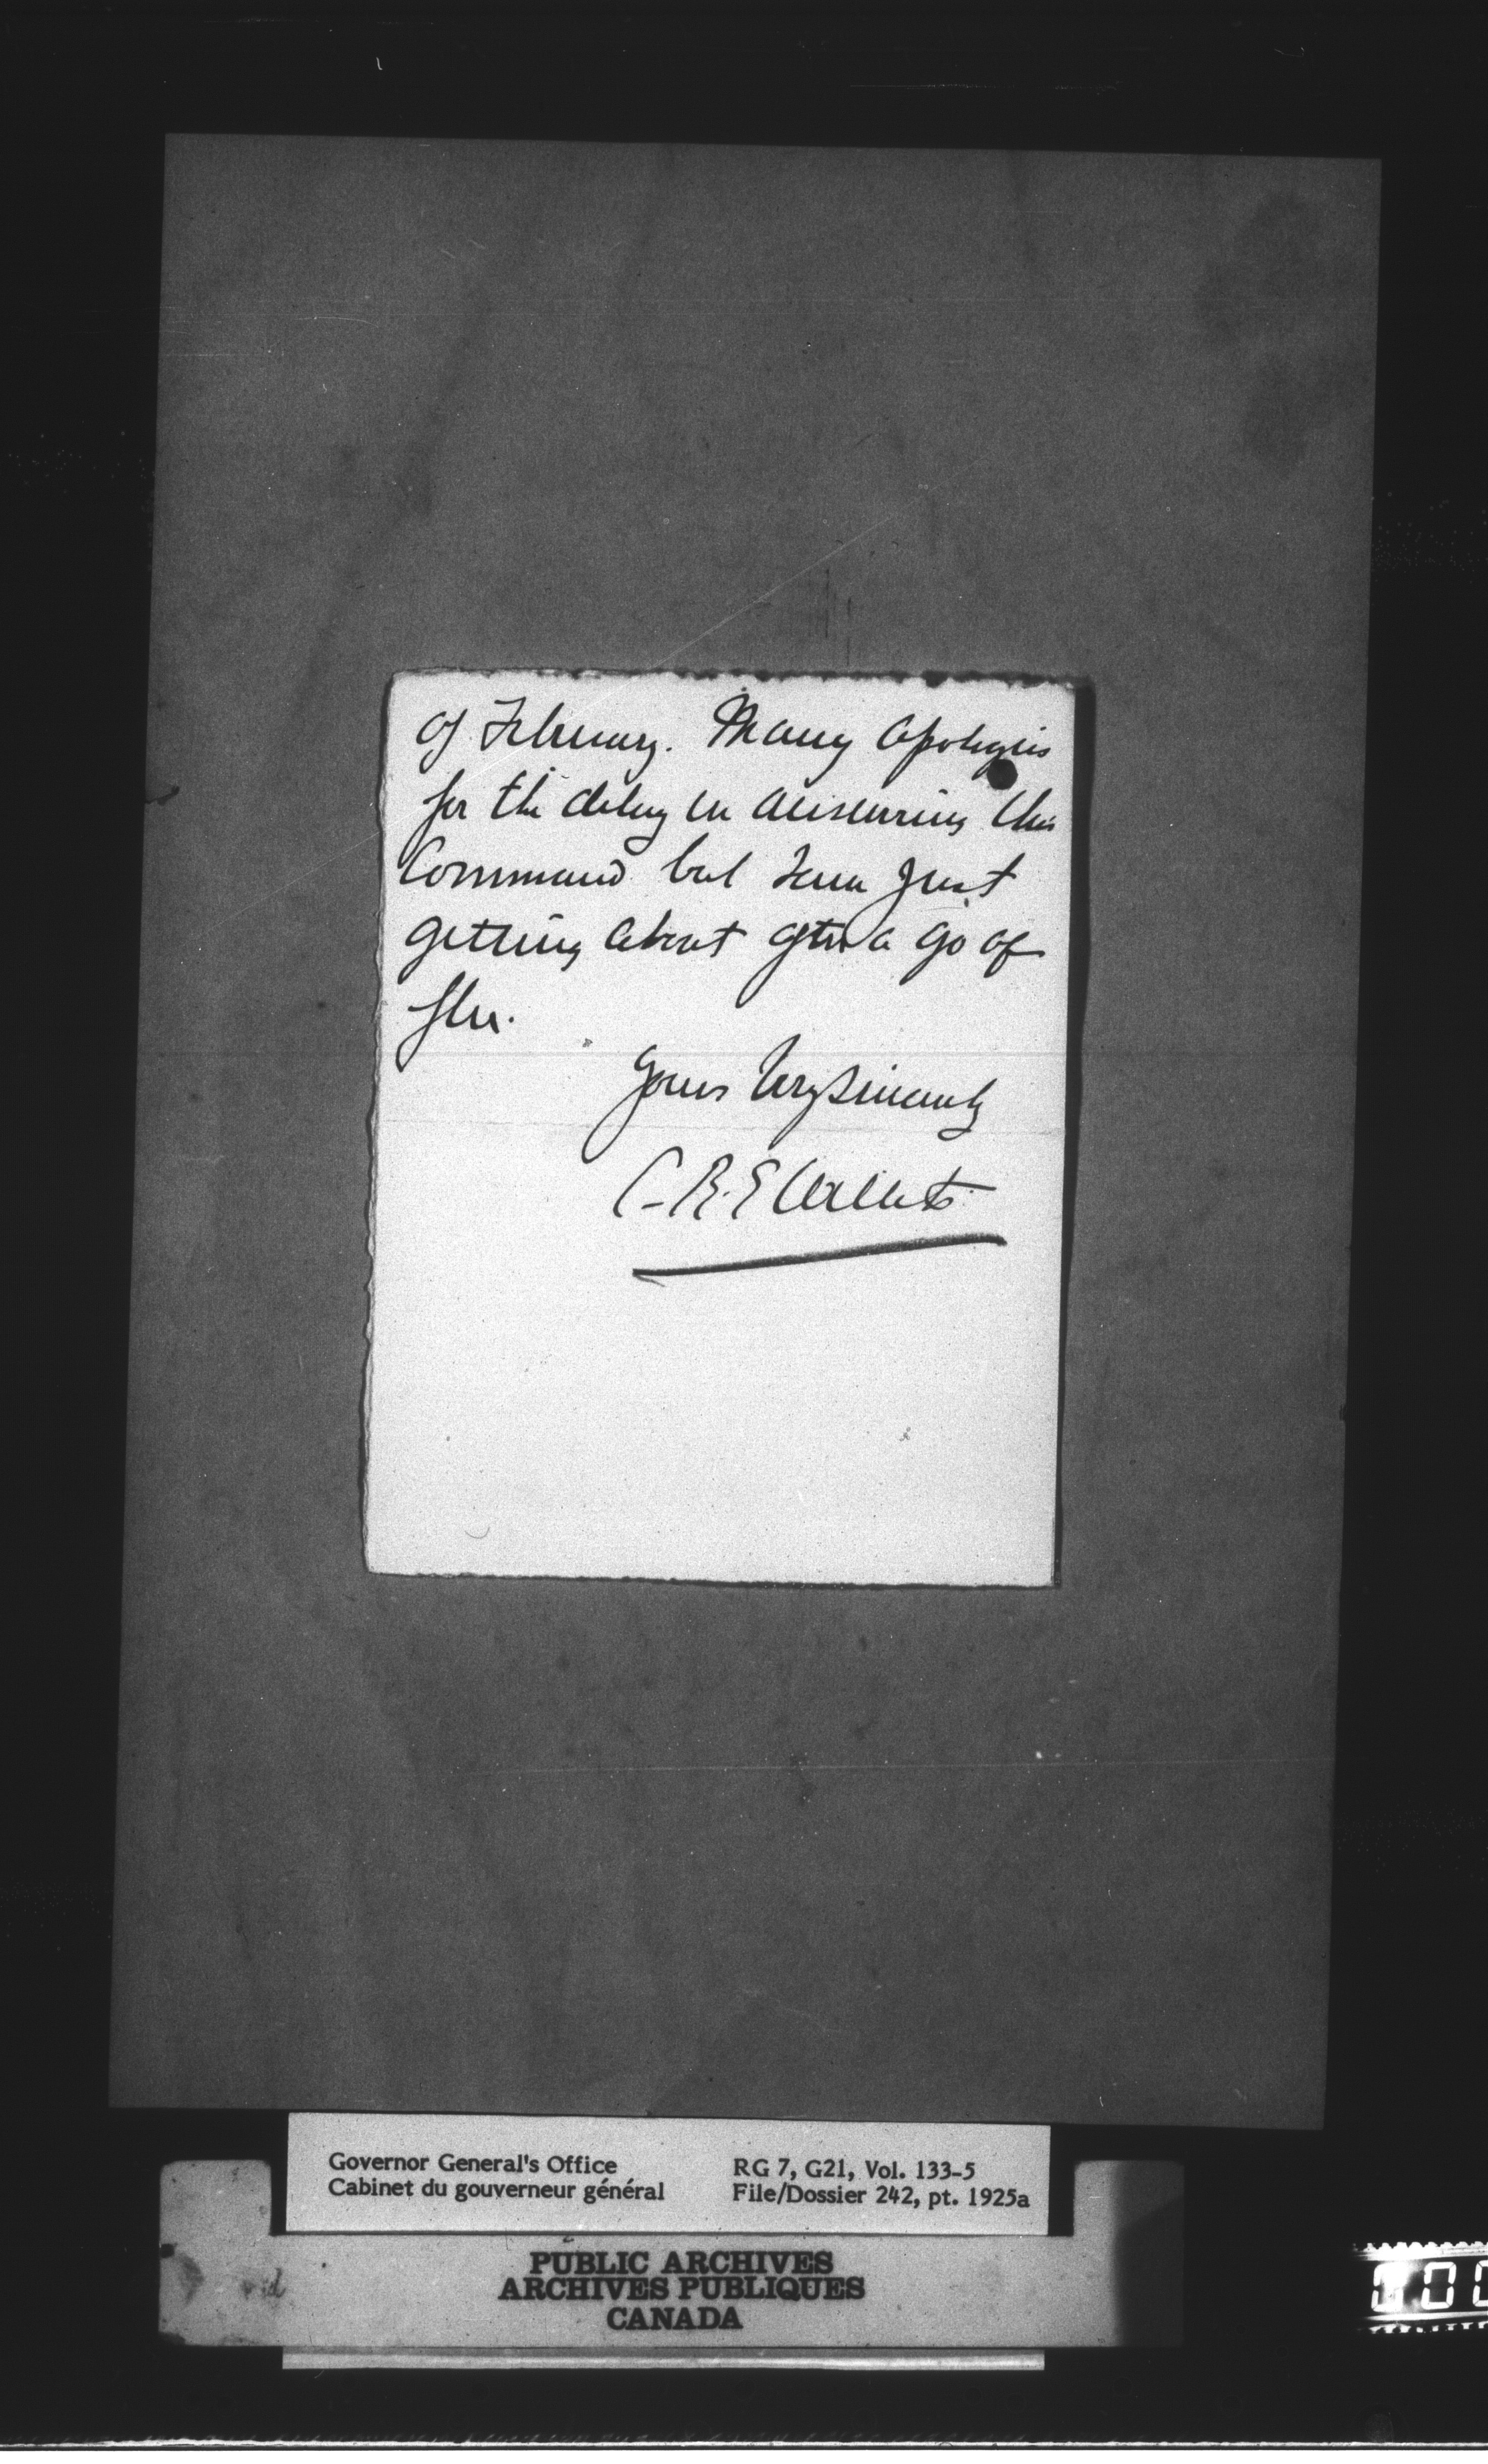 of February. Many apologies
for the delay in answering this
Command but I am just
getting about after a go of
flu.
Yours Very Sincerely
C. R. E. Willets
Governor General's Office
Cabinet du gouverneur général
RG 7, G21, Vol. 133-5
File/Dossier 242, pt. 1925a
PUBLIC ARCHIVES
ARCHIVES PUBLIQUES
CANADA